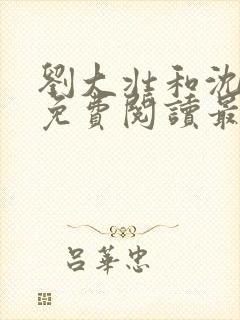 劉大壯和沈
免費閱讀最
呂華忠